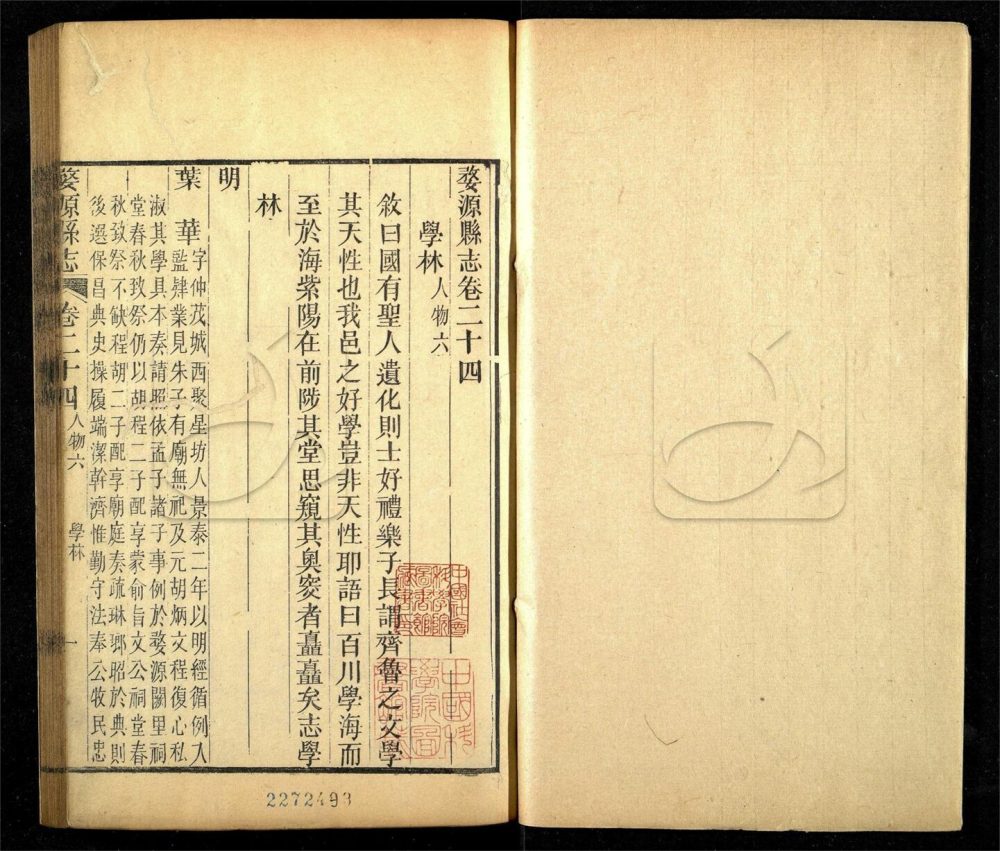 婺源縣志卷二十四
學林人物六
敘曰國有聖人遺化則士好禮樂子長謂齊魯之文學
其天性也我邑之好學豈非天性耶語曰百川學海而
至於海紫陽在前陟其堂思窺其奧窔者矗矗矣志學
林
明
葉華字仲茂城西聚星坊人景泰二年以明經循例入
監肄業見朱子有廟無祀及元胡炳文程復心私
淑其學具本奏請照依孟子諸子事例於婺源闕里祠
堂春秋致祭仍以胡程二子配享蒙俞旨文公祠堂春
秋致祭不缺程胡二子配享廟庭奏疏琳瑯昭於典則
後選保昌典史操履端潔幹濟惟勤守法奉公牧民忠
婺源縣志 卷二十四 人物六 學林 一
中國社會
科學院
中國科
學院圖
2272493